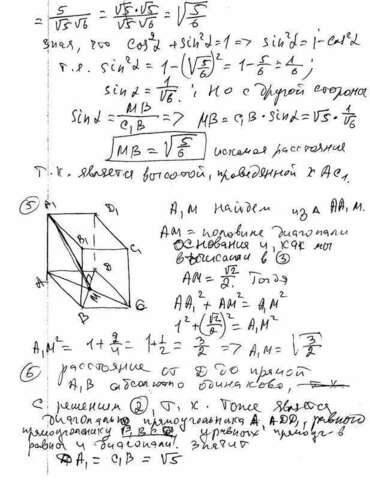 = 5/(√5·√6) = (√5·√5)/(√5·√6) = √(5/6)
зная, что cos²α + sin²α = 1 => sin²α = 1 - cos²α
т.е. sin²α = 1 - (√(5/6))² = 1 - 5/6 = 1/6;
sinα = 1/√6. Но с другой стороны
sinα = MB/C₁B => MB = C₁B · sinα = √5 · 1/√6
MB = √(5/6) искомая расстояние
т.к. является высотой, проведенной к AC₁.
⑤ A₁M найдем из Δ AA₁M.
A₁ D₁ B₁ C₁ A D M B C
AM = половине диагонали
основания и, как мы
в ③
AM = √2/2. Тогда
AA₁² + AM² = A₁M²
1² + (√2/2)² = A₁M²
A₁M² = 1 + 2/4 = 1 + 1/2 = 3/2 => A₁M = √(3/2)
⑥ расстояние от D до прямой
A₁B абсолютно одинаково,
с решением ②, т.к. тоже является
диагональю прямоугольника A₁ADD₁, равного
прямоугольнику B₁BCC₁, у равных прямоуг-в
равны и диагонали. Значит
DA₁ = C₁B = √5